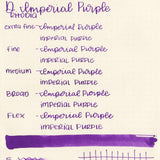 D. Imperial Purple
Rhodia
extra fine - Imperial Purple
IMPERIAL PURPLE
Fine - Imperial Purple
IMPERIAL PURPLE
medium - Imperial Purple
IMPERIAL PURPLE
Broad - Imperial Purple
IMPERIAL PURPLE
Flex - Imperial Purple
IMPERIAL PURPLE